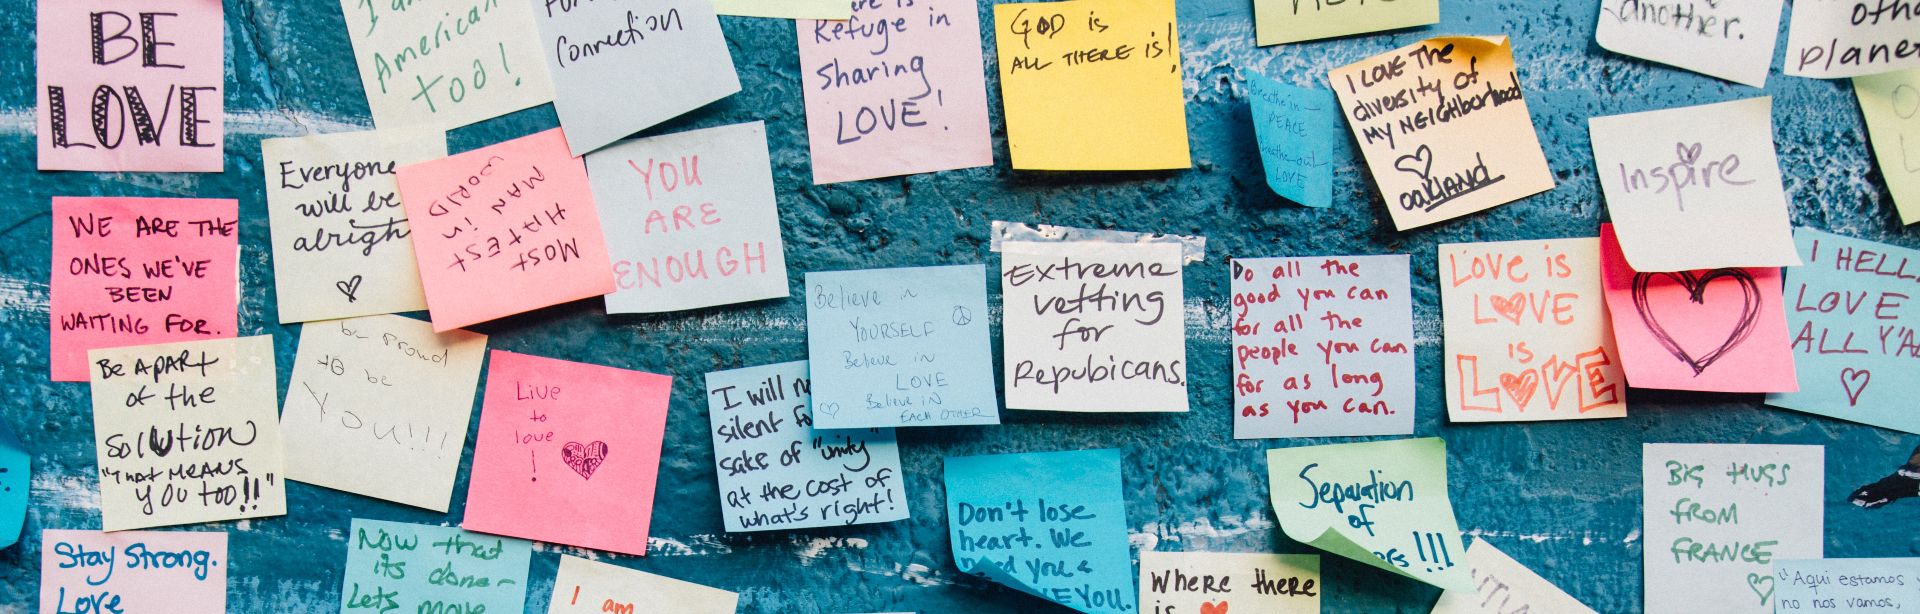 BE
LOVE
I am
American
too!
Connection
Refuge in
sharing
LOVE!
GOD is
ALL THERE is!
Breathe in –
PEACE
Breathe out –
LOVE
I LOVE The
diversity of
MY NEIGhborhood
oakLAND
another.
planet
Inspire
Everyone
will be
alright
MOST
HATEST
MAN in
WORLD
YOU
ARE
ENOUGH
WE ARE THE
ONES WE'VE
BEEN
WAITING FOR.
Believe in
YOURSELF
Believe in
LOVE
Believe IN
EACH OTHER
Extreme
vetting
for
Repubicans.
Do all the
good you can
for all the
people you can
for as long
as you can.
LOVE is
LOVE
is
LOVE
I HELLA
LOVE
ALL Y'ALL
Be APART
of the
SOLUTION
"That MEANS
YOU TOO!!"
be proud
to be
You!!!
Live
to
love
!
I will
silent
sake of "unity"
at the cost of
what's right!
Don't lose
heart. We
need you &
YOU.
Separation
of
!!!
BIG HUGS
FROM
FRANCE
Stay Strong.
Love
Now that
its done –
Lets move
I am
Where there
is
"Aqui estamos
no nos vamos,